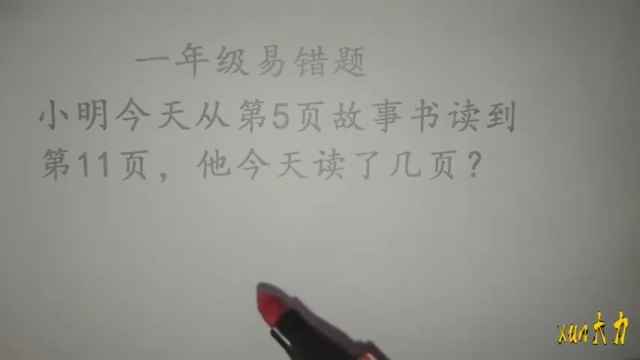 一年级易错题
小明今天从第5页故事书读到
第11页，他今天读了几页？
xun大力